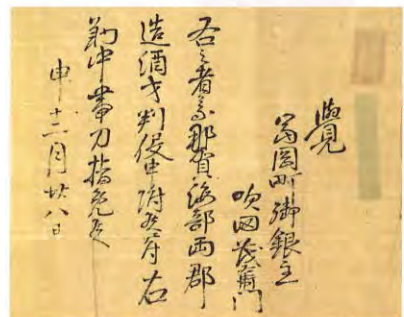 覺
富岡町御銀主
吹田茂右衛門
右之者義那賀海部両郡
造酒才判役申附候ニ付右
勤中帯刀指免足
申十二月廿八日